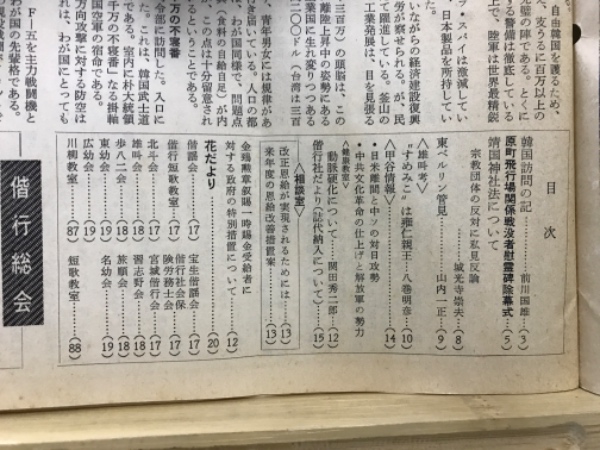 目次
韓国訪問の記……前川国雄…(3)
原町飛行場関係戦没者慰霊碑除幕式…(5)
靖国神社法について
宗教団体の反対に私見反論
……城光寺崇夫…(8)
東ベルリン管見……山内一正…(9)
＜雄叫考＞
「すめみこ」は雍仁親王…八巻明彦…(10)
＜甲谷情報＞……(14)
・日米離間と中ソの対日攻勢
・中共文化革命の仕上げと解放軍の勢力
＜健康教室＞
動脈硬化について……岡田秀二郎…(12)
偕行社だより(誌代納入について)…(15)
＜相談室＞
改正恩給が実現されるためには…(13)
来年度の恩給改善措置案……(13)
金鵄勲章叙賜一時賜金受給者に
対する政府の特別措置について……(12)
花だより……(20)
偕謡会……17
宝生偕謡会……17
偕行短歌教室…17
偕行社会保険労務士会……17
北斗会……17
宮城偕行会……17
雄叫会……18
習志野会……18
歩八二会……18
旅順会……18
東幼会……19
名幼会……19
広幼会……(19)
川柳教室……87
短歌教室……(88)
自由韓国を護るため、
え、支うるに百万以上の
元態の陣である。とくに
する警備は徹底している
上で、陸軍は世界最精鋭
スパイは激減してい
日本製品を所持してい
た。
いながらの経済建設復興
労が察せられる。が、民
て躍進している。釜山の
工業発展は、目を見張る
三百万）の頭脳は、この
離陸上昇中の姿勢にある
業国に生れ変りつつある
三〇〇ドル（台湾は三二
、青年男女には規律があ
き届いている。人口の都
は、わが国同様で、問題点
（食料の自給自足）が内
が、この点は十分留意され
るということである。
万の不寝番
令部に訪問した。入口に
た。これは、韓国武士道
である。室内に朴大統領
千万の不寝番」なる掛軸
国空軍の宿命である。
方向攻撃に対する防空は
れは、わが国にとっても
F―五を主力戦闘機と
わが国の先輩格である。
偕行総会